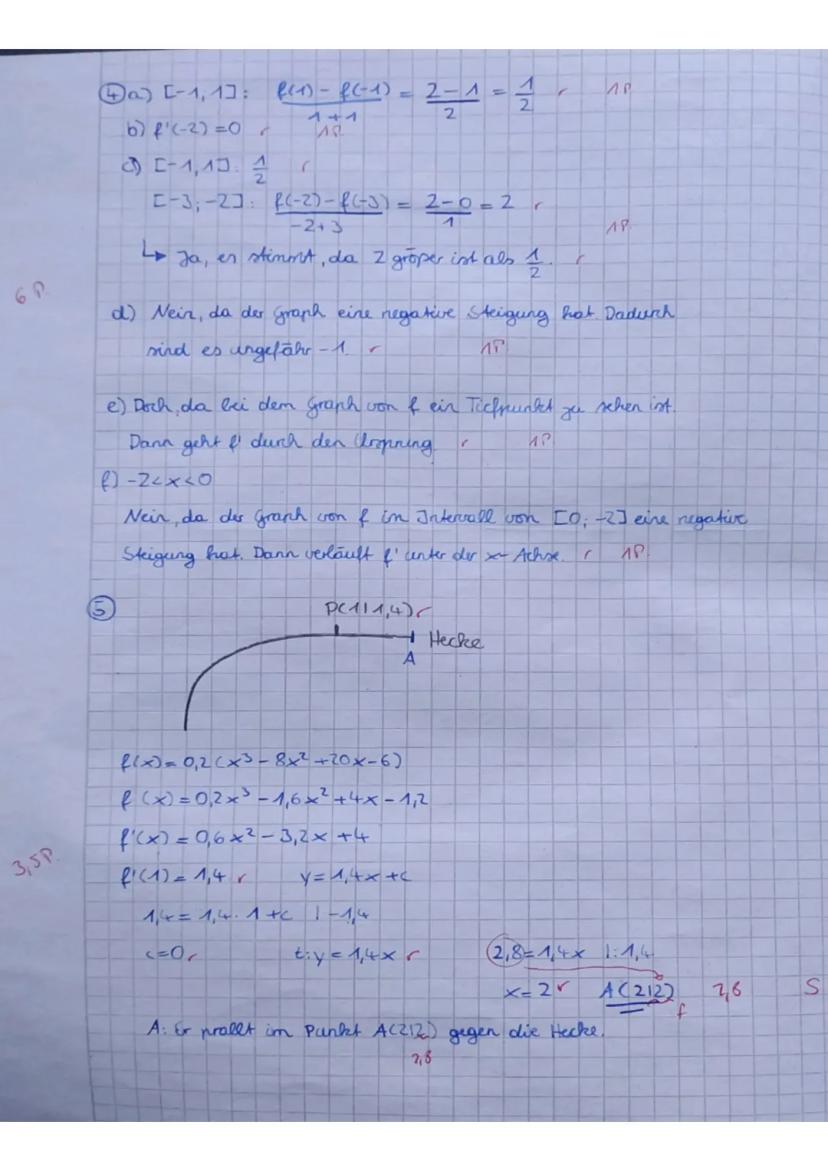 ④ a) [-1, 1]: f(1) - f(-1) / 1+1 = 2-1 / 2 = 1/2 1P
b) f'(-2) = 0 1P
c) [-1, 1]: 1/2
[-3; -2]: f(-2) - f(-3) / -2+3 = 2-0 / 1 = 2
1P
↳ Ja, es stimmt, da 2 größer ist als 1/2.
6P.
d) Nein, da der Graph eine negative Steigung hat. Dadurch
sind es ungefähr -1. 1P
e) Doch, da bei dem Graph von f ein Tiefpunkt zu sehen ist.
Dann geht f' durch den Ursprung. 1P
f) -2<x<0
Nein, da der Graph von f im Intervall von [0; -2] eine negative
Steigung hat. Dann verläuft f' unter der x-Achse. 1P
⑤
P(1|1,4)
Hecke
A
f(x) = 0,2(x³ - 8x² + 20x - 6)
f(x) = 0,2x³ - 1,6x² + 4x - 1,2
f'(x) = 0,6x² - 3,2x + 4
3,5P.
f'(1) = 1,4 y = 1,4x + c
1,4 = 1,4 · 1 + c | -1,4
c = 0 t: y = 1,4x 2,8 = 1,4x | : 1,4
x = 2 A(2|2) 2,8 S
f
A: Er prallt im Punkt A(2|2) gegen die Hecke.
2,8